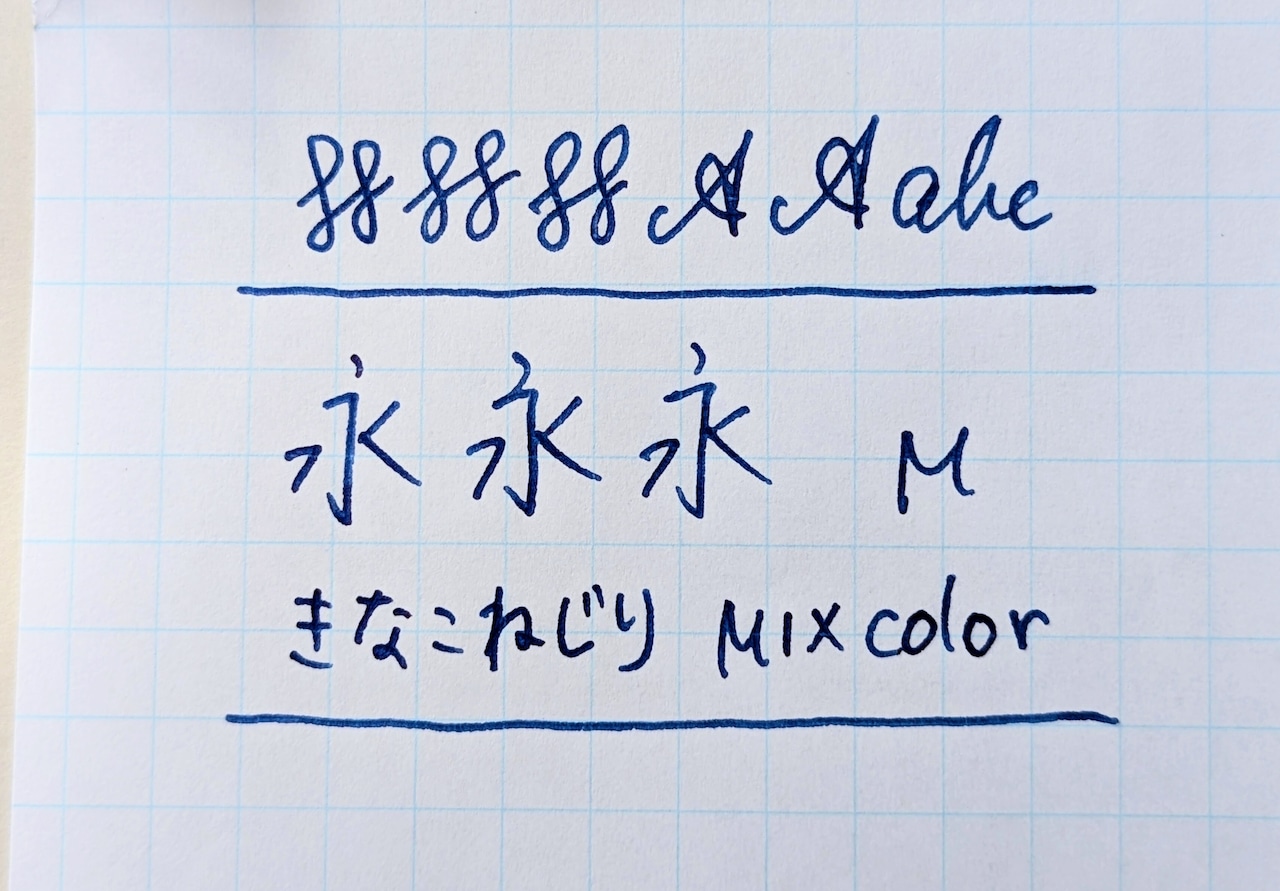 A A abc
永 永 永 M
きなこねじり MIX color